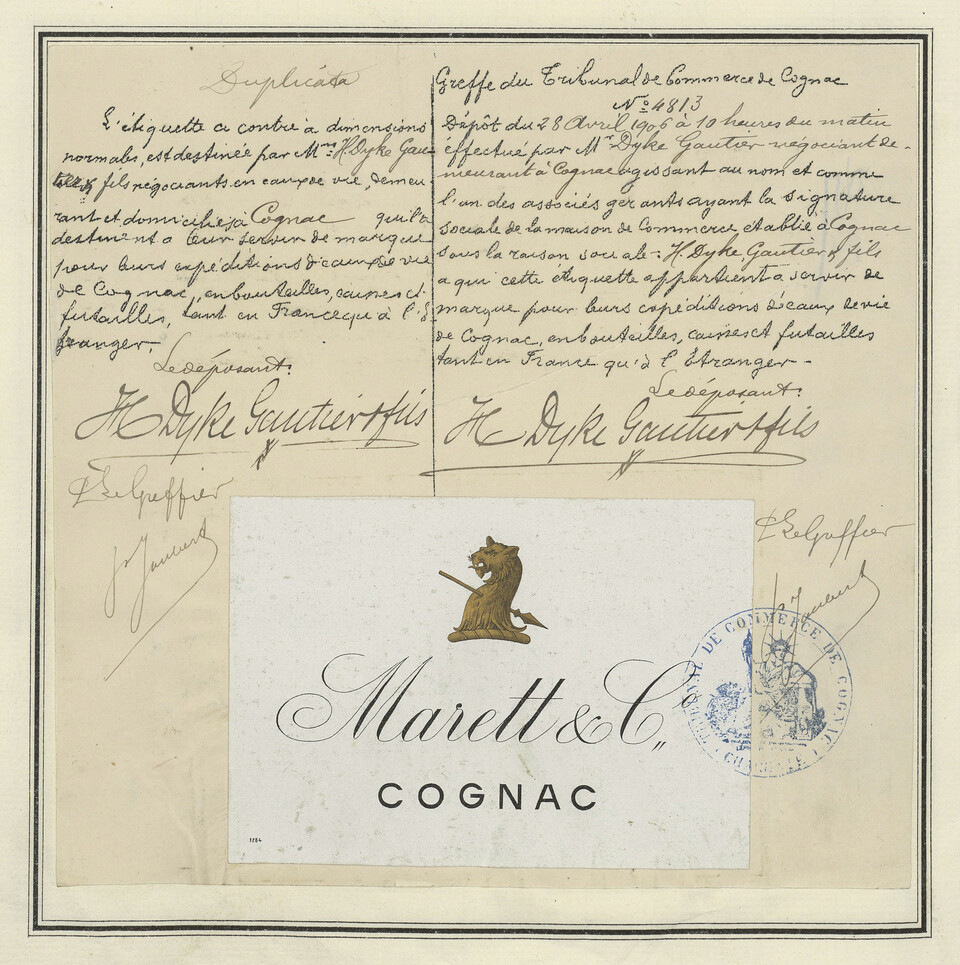 Duplicata
L'étiquette ci contre à dimensions
normales, est destinée par Mrs H. Dyke Gau-
tier & fils négociants en eaux de vie, demeu
rant et domiciliés à Cognac qu'ils
destinent à leur servir de marque
pour leurs expéditions d'eaux de vie
de Cognac, en bouteilles, caisses et
futailles, tant en France qu'à l'é
tranger.
Le déposant:
H Dyke Gautier & fils
Le Greffier
Joubert
Greffe du Tribunal de Commerce de Cognac
No 4813
Dépôt du 28 Avril 1906 à 10 heures du matin
effectué par Mr Dyke Gautier négociant de-
meurant à Cognac agissant au nom et comme
l'un des associés gérants ayant la signature
sociale de la maison de Commerce, établie à Cognac
sous la raison sociale: H. Dyke, Gautier & fils
a qui cette étiquette appartient a servir de
marque pour leurs expéditions d'eaux de vie
de Cognac, en bouteilles, caisses et futailles
tant en France qu'à l'Etranger -
Le déposant:
H Dyke Gautier & fils
Le Greffier
Joubert
TRIBUNAL DE COMMERCE DE COGNAC
CHARENTE
Marett & Co
COGNAC
1284